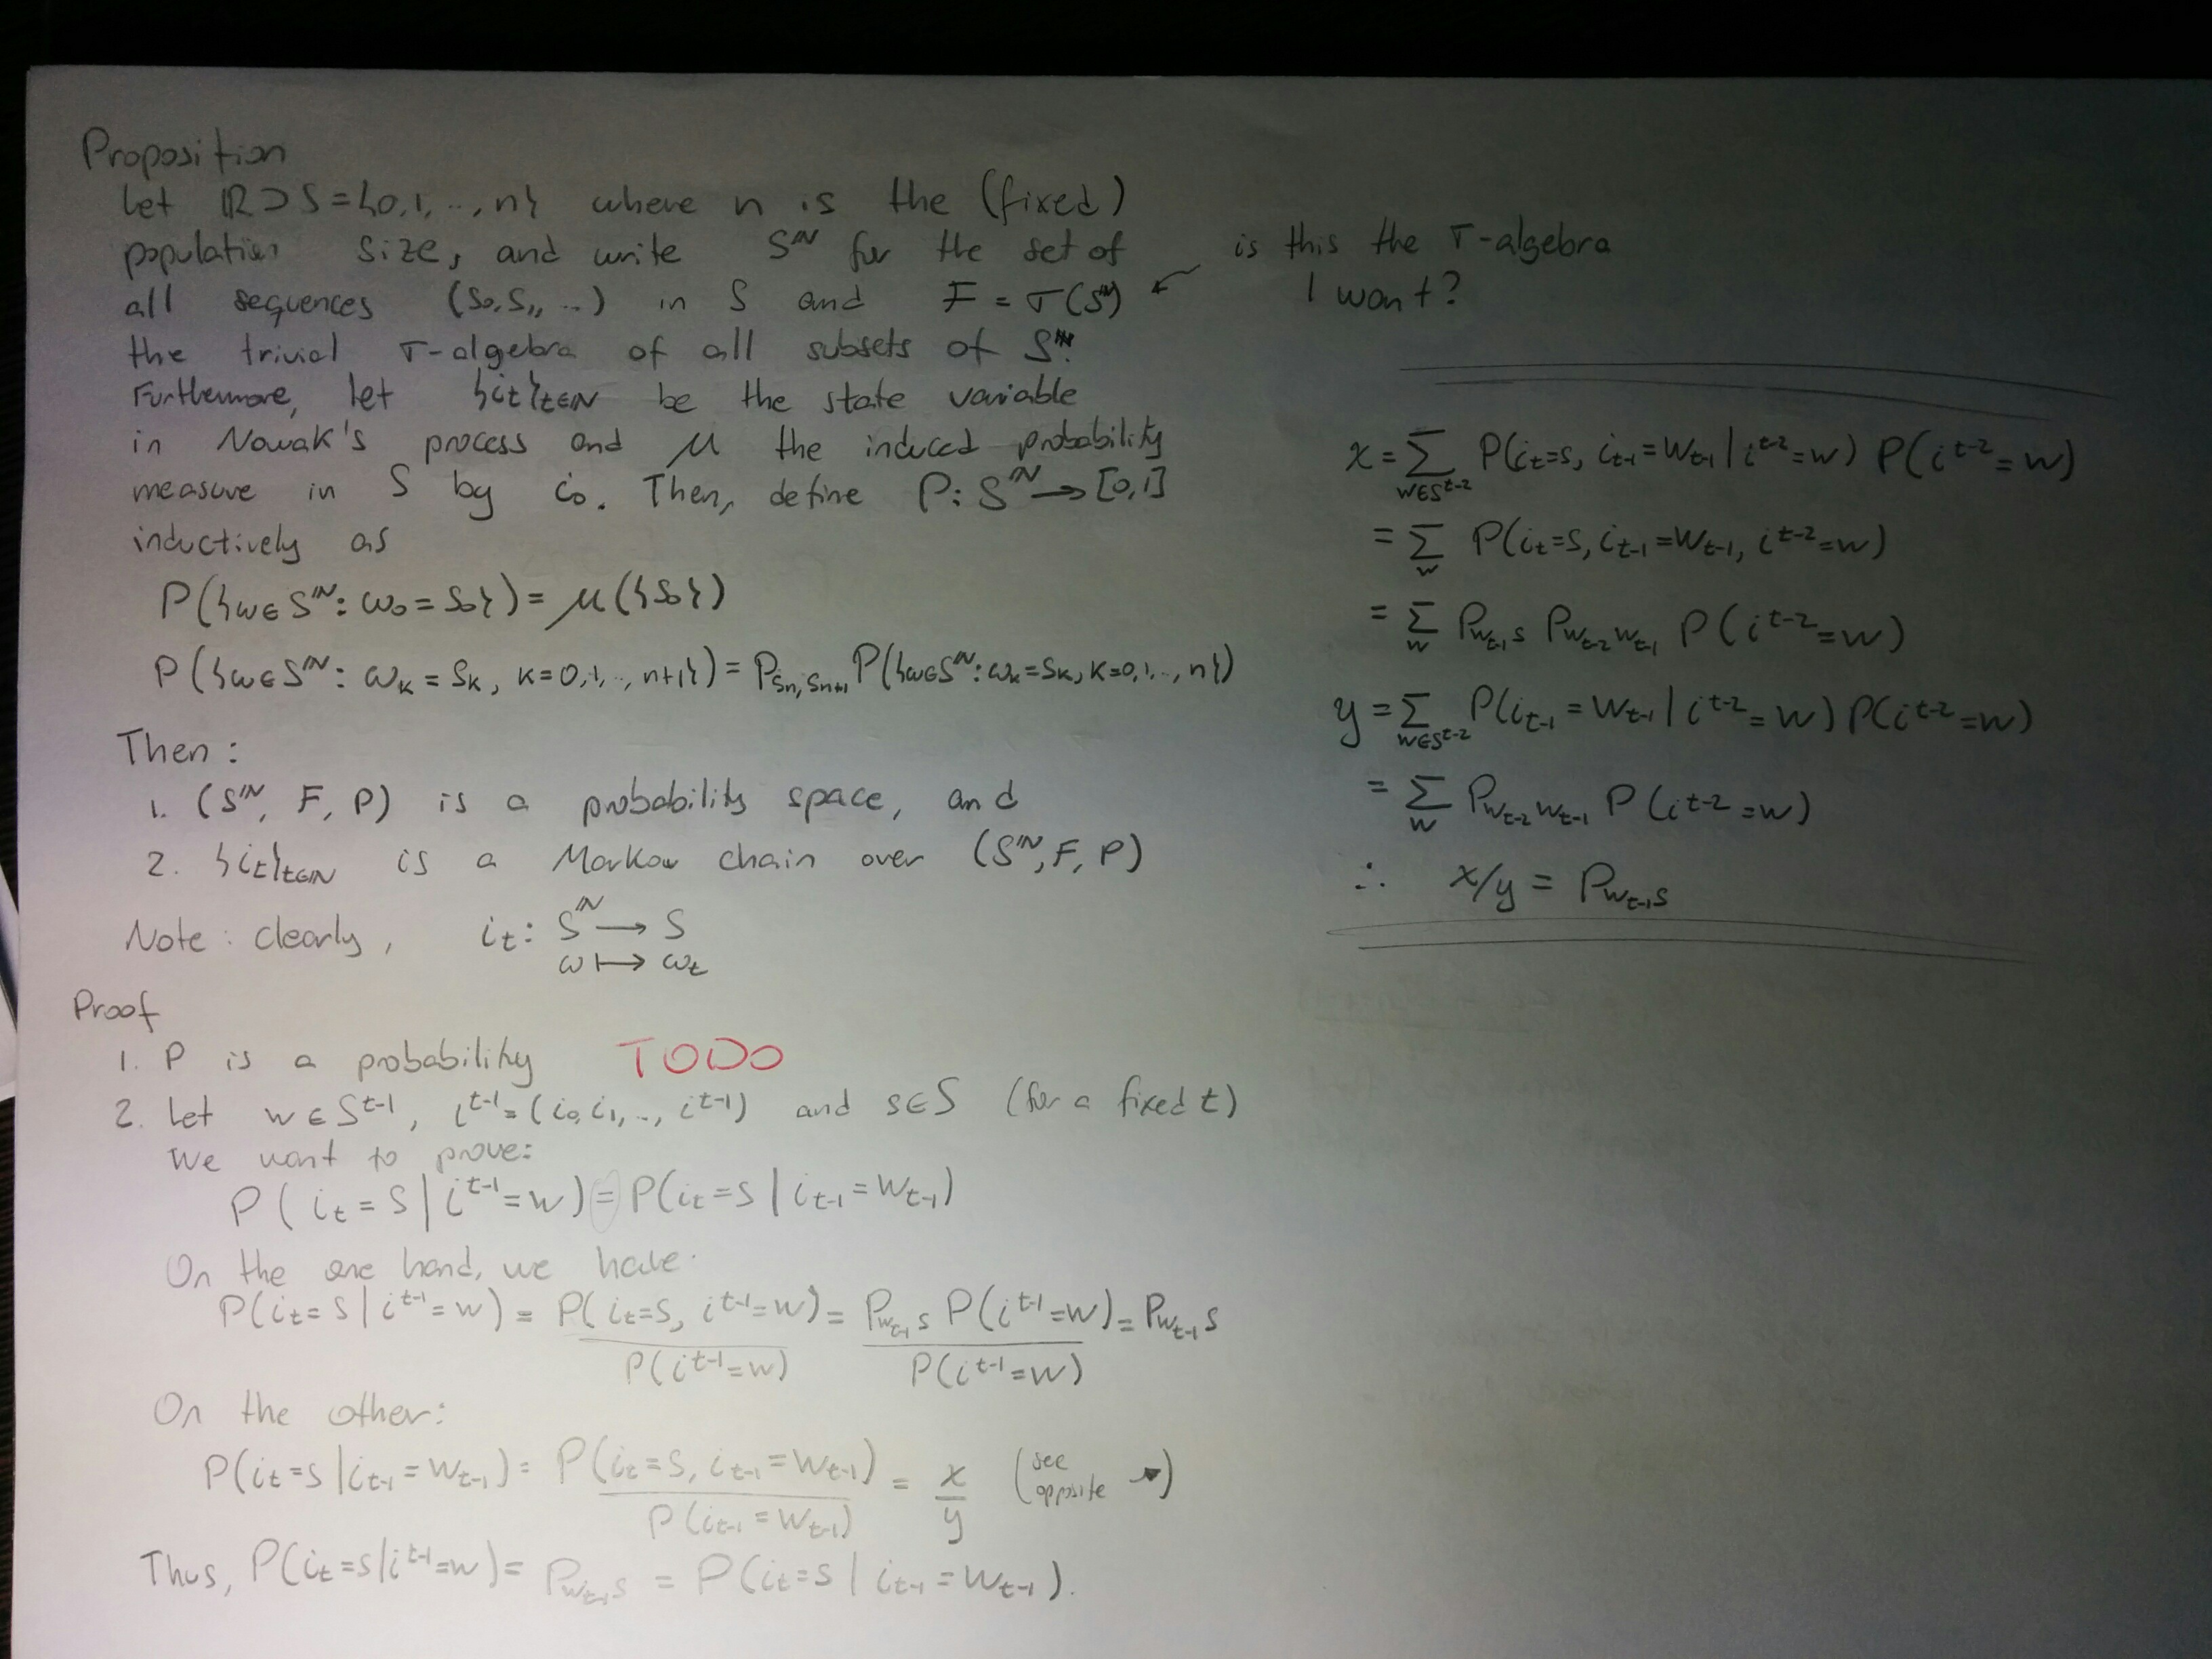 Proposition
Let ℝ ⊃ S = {0,1,..,n} where n is the (fixed)
population size, and write S^ℕ for the set of
all sequences (s₀,s₁,...) in S and F = σ(S^ℕ)
the trivial σ-algebra of all subsets of S^ℕ.
Furthermore, let {i_t}_{t∈ℕ} be the state variable
in Nowak's process and μ the induced probability
measure in S by i₀. Then, define P: S^ℕ → [0,1]
inductively as
P({ω∈S^ℕ: ω₀ = s₀}) = μ({s₀})
P({ω∈S^ℕ: ω_k = s_k, k=0,1,..,n+1}) = P_{s_n,s_{n+1}} P({ω∈S^ℕ: ω_k=s_k, k=0,1,..,n})
Then:
1. (S^ℕ, F, P) is a probability space, and
2. {i_t}_{t∈ℕ} is a Markov chain over (S^ℕ, F, P)
Note: clearly, i_t: S^ℕ → S
ω ↦ ω_t
Proof
1. P is a probability TODO
2. Let w ∈ S^{t-1}, i^{t-1} = (i₀, i₁, .., i^{t-1}) and s∈S (for a fixed t)
We want to prove:
P( i_t = s | i^{t-1} = w) = P(i_t = s | i_{t-1} = w_{t-1})
On the one hand, we have:
P(i_t = s | i^{t-1} = w) = P( i_t=s, i^{t-1}=w) / P(i^{t-1}=w) = P_{w_{t-1} s} P(i^{t-1}=w) / P(i^{t-1}=w) = P_{w_{t-1} s}
On the other:
P(i_t=s | i_{t-1} = w_{t-1}) = P(i_t=s, i_{t-1}=w_{t-1}) / P(i_{t-1} = w_{t-1}) = x/y (see opposite →)
Thus, P(i_t=s | i^{t-1}=w) = P_{w_{t-1} s} = P(i_t=s | i_{t-1} = w_{t-1}).
is this the σ-algebra
I want?
x = Σ_{w∈S^{t-2}} P(i_t=s, i_{t-1}=w_{t-1} | i^{t-2}=w) P(i^{t-2}=w)
= Σ_w P(i_t=s, i_{t-1}=w_{t-1}, i^{t-2}=w)
= Σ_w P_{w_{t-1} s} P_{w_{t-2} w_{t-1}} P(i^{t-2}=w)
y = Σ_{w∈S^{t-2}} P(i_{t-1} = w_{t-1} | i^{t-2}=w) P(i^{t-2}=w)
= Σ_w P_{w_{t-2} w_{t-1}} P(i^{t-2}=w)
∴ x/y = P_{w_{t-1} s}